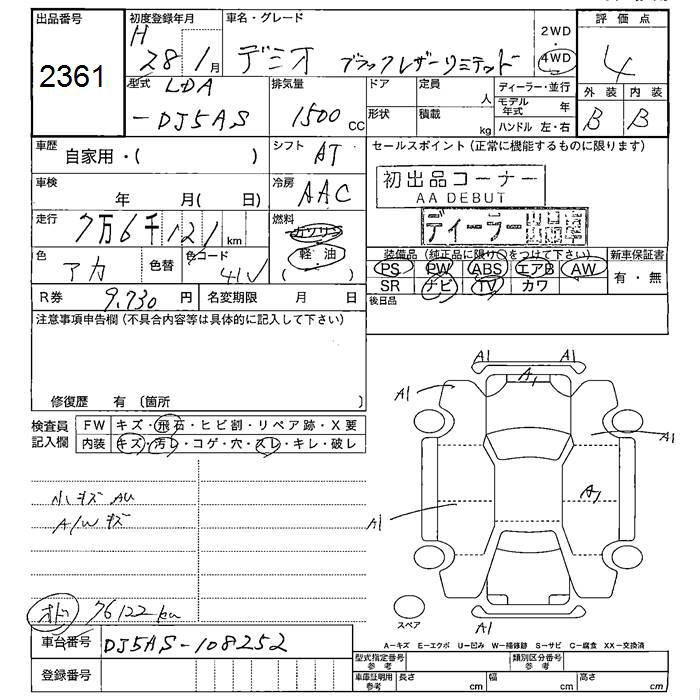 出品番号
2361
初度登録年月
H 28 1月
車名・グレード
デミオ ブラックレザーリミテッド
2WD
・
4WD
評価点
4
外装 内装
B B
型式
LDA
-DJ5AS
排気量
1500 CC
ドア 定員 人
形状 積載 kg
ディーラー・並行
モデル年式 年
ハンドル 左・右
車歴
自家用・( )
シフト AT
セールスポイント (正常に機能するものに限ります)
初出品コーナー
AA DEBUT
ディーラー
車検 年 月( 日)
冷房 AAC
走行 7万6千121 km
燃料 ガソリン
軽・油
( )
色 アカ
色替
色コード 41V
装備品 (純正品に限り○をつけて下さい)
PS PW ABS エアB AW
SR ナビ TV カワ
新車保証書
有・無
R券 9,730 円
名変期限 月 日
後日品
注意事項申告欄 (不具合内容等は具体的に記入して下さい)
修復歴 有 (箇所 )
検査員
記入欄
FW キズ・飛石・ヒビ割・リペア跡・X要
内装 キズ・汚レ・コゲ・穴・スレ・キレ・破レ
小キズ AU
A/W キズ
オド 76122km
A1 A1
A1
A1
A1
A1
A1
A1
スペア
A-キズ E-エクボ U-凹み W-補修跡 S-サビ C-腐食 XX-交換済
車台番号 DJ5AS-108252
登録番号
型式指定番号
参考
類別区分番号
参考
車庫証明用
参考
長さ cm 幅 cm 高さ cm